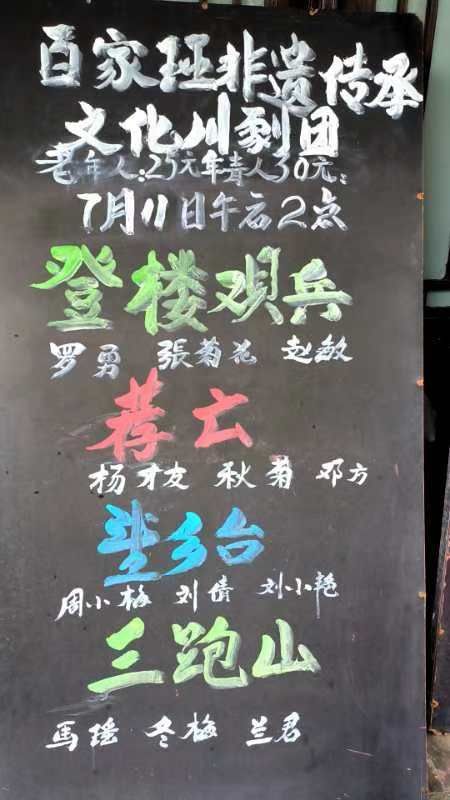 百家班非遗传承
文化川劇团
老年人:25元年青人30元:
7月11日午后2点
登楼观兵
罗勇 張菊花 赵敏
荐亡
杨才友 秋菊 邓方
望乡台
周小梅 刘倩 刘小艳
三跑山
馬瑶 冬梅 兰君